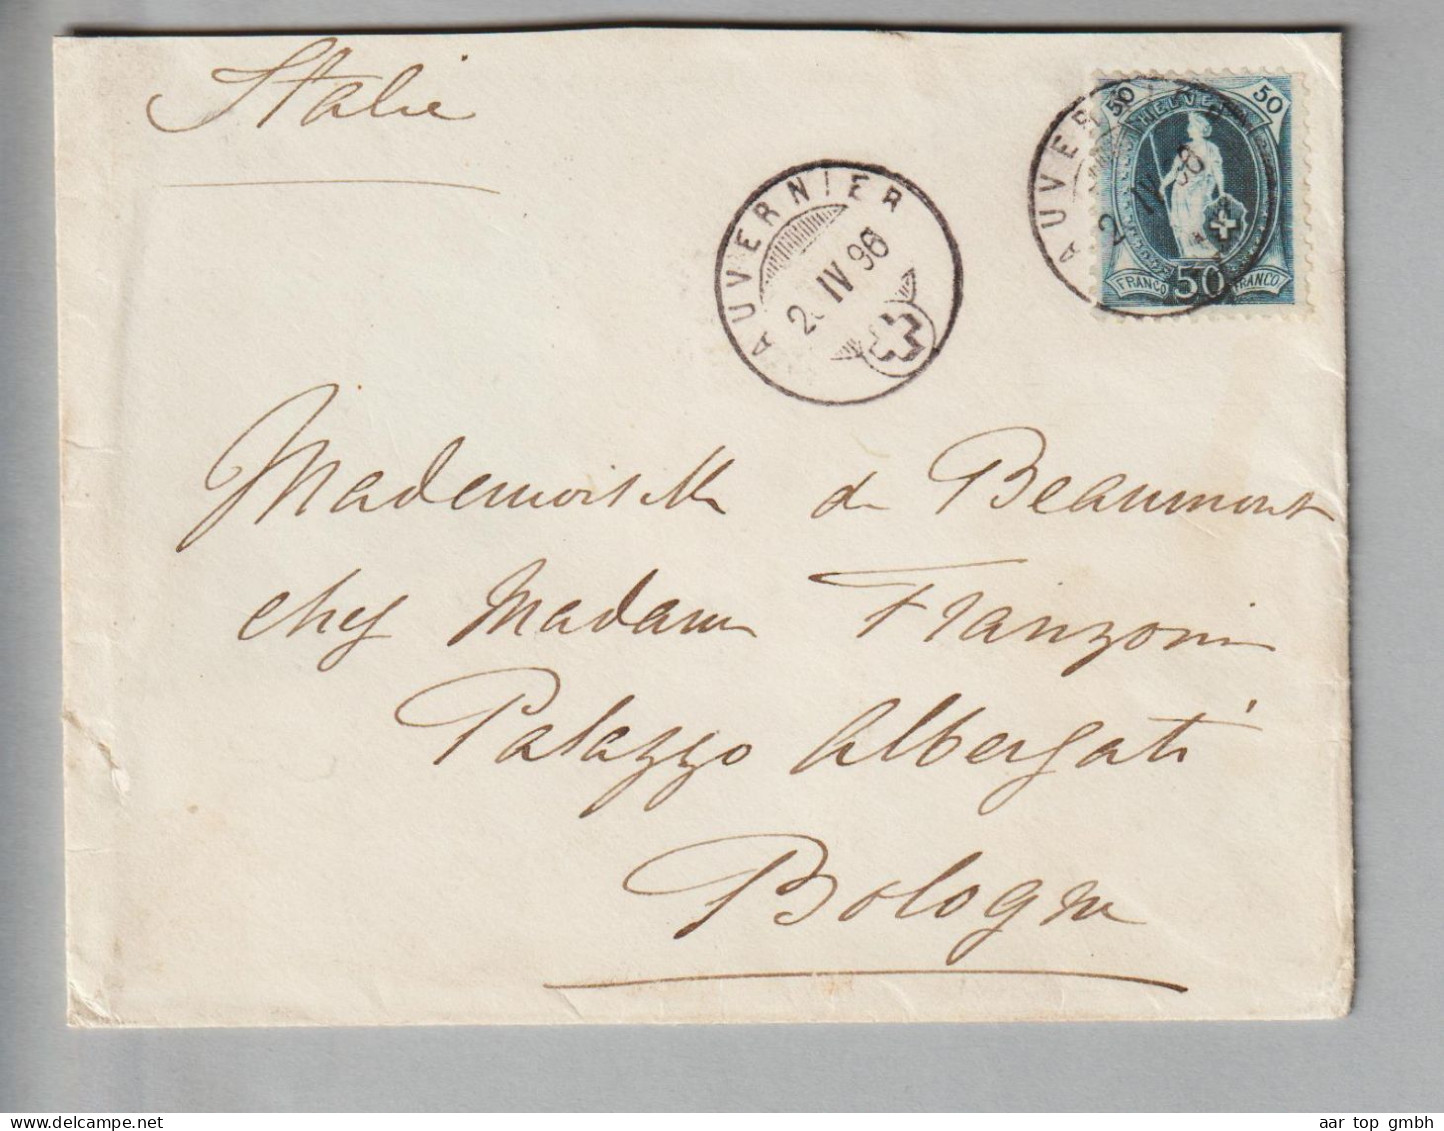 Italie
AUVERNIER
IV 96
50 HELVETIA 50
AUVER
2 IV 96
FRANCO 50 FRANCO
Mademoiselle de Beaumont
chez Madame Franzoni
Palazzo Albergati
Bologne
aar top gmbh
delcampe.net